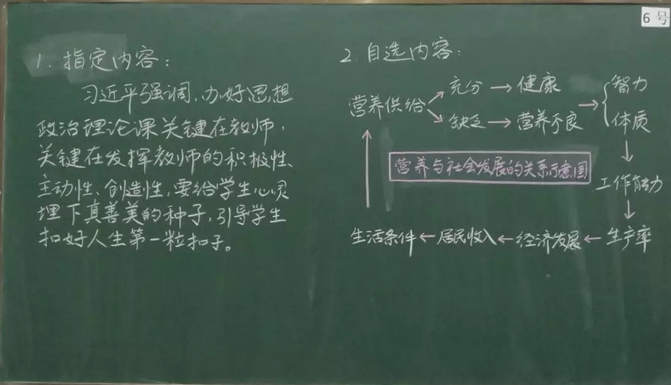 6号
1. 指定内容:
习近平强调,办好思想
政治理论课关键在教师,
关键在发挥教师的积极性、
主动性、创造性,要给学生心灵
埋下真善美的种子,引导学生
扣好人生第一粒扣子。
2. 自选内容:
营养供给
充分 → 健康
缺乏 → 营养不良
→ { 智力
体质
营养与社会发展的关系示意图
工作能力
生活条件 ← 居民收入 ← 经济发展 ← 生产率